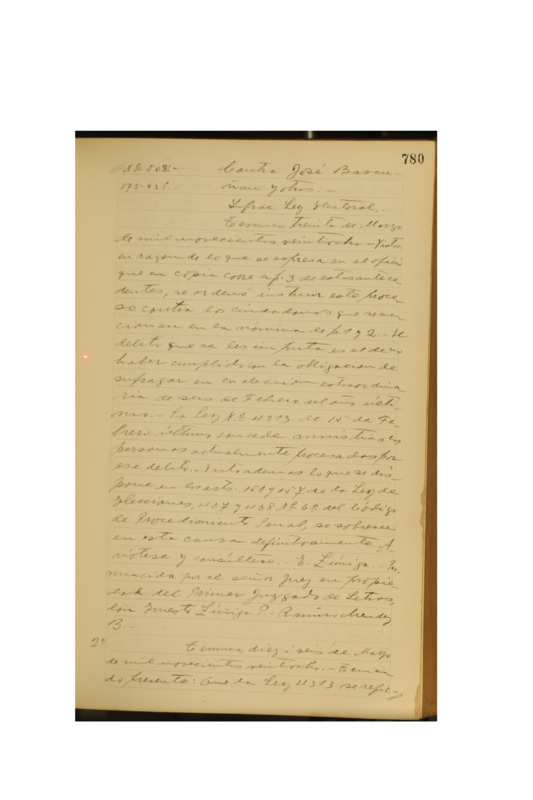 780
Nº 508.- Contra José Bascu-
ñan y otros.-
Infrac. Ley Electoral.-
Temuco, treinta de Marzo
de mil novecientos veintiocho.- Vistos
en razon de lo que se espresa en el oficio
que en copia corre a fs. 3 de estos antece-
dentes, se ordenó instruir este proce-
so contra los ciudadanos que se men-
cionan en la nómina de fs 1 y 2.- El
delito que se les imputa es el de no
haber cumplido con la obligacion de
sufragar en la eleccion estraordina-
ria de seis de Febrero del año últi-
mo.- La Ley Nº 4313 de 15 de Fe-
brero último concede amnistía a las
personas actualmente procesadas por
ese delito.- Visto ademas lo que se dis-
pone en los arts. y de la Ley de
Elecciones, 437 y 438 Nº 6º del Código
de Procedimiento Penal, se sobresee
en esta causa definitivamente. A-
nótese y consúltese.- E. Zúñiga.- Pro-
nunciada por el señor Juez en propie-
dad del Primer Juzgado de Letras,
don Ernesto Zúñiga P.- Ramiro Mendez
B.-
2º Temuco, diez i seis de Mayo
de mil novecientos veintiocho.- Tenien-
do presente: Que la Ley 4313 se refiere